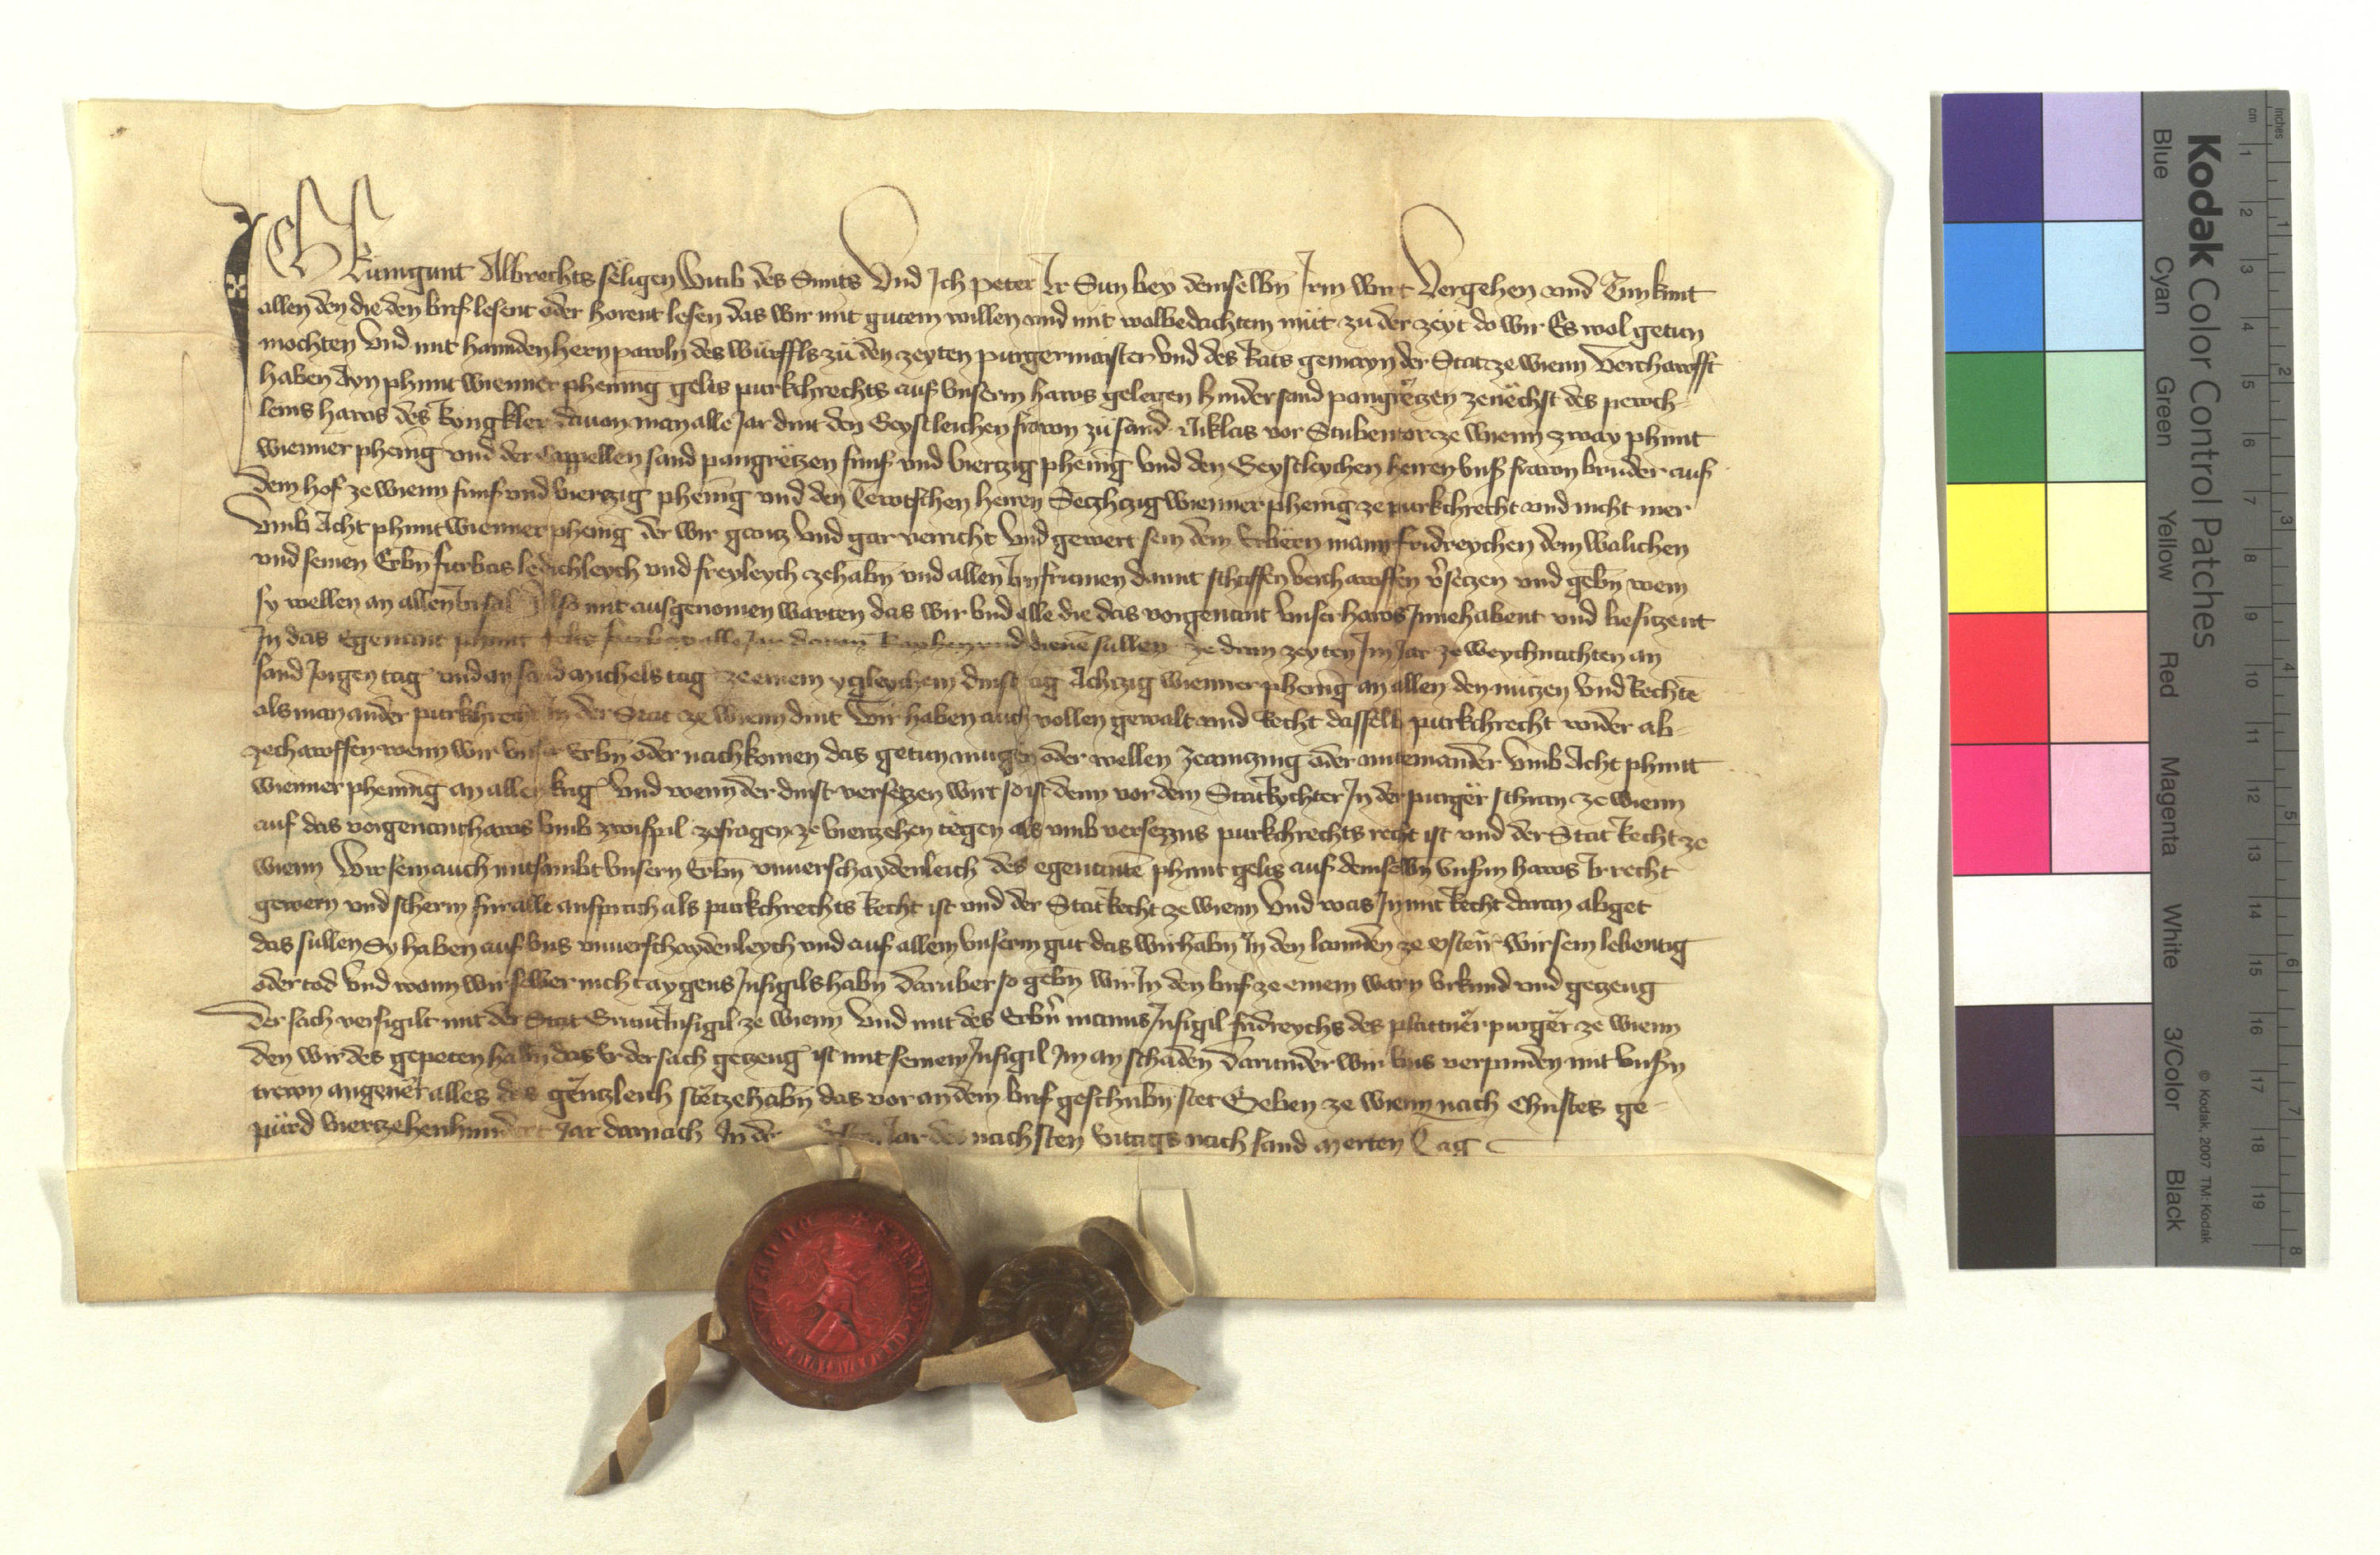 ICH kunigunt Albrechts seligen witib des Smits Vnd Ich peter Ir Sun bey demselbn Irm wirt Vergehen vnd Tun kunt
allen den die den brif lesent oder horent lesen das wir mit gutem willen vnd mit wolbedachtem müt zu der zeyt do wir Es wol getun
mochten Vnd mit hannden hern pawln des würffls zu den zeyten purgermaister Vnd des Rats gemayn der Stat ze wienn Verchawfft
haben Ayn phunt wienner phening gelts purkchrechts auf Vnserm haws gelegen hinder sand pangreczen zenechst des
haws des davon man alle Jar dint den Geystleichen frawn zu sand Niklas vor Stubentor ze wienn zway phunt
wienner phenig vnd der Cappellen sand pangreczen funf vnd Vierczig phenig Vnd den Geystleychen herren vnsr frawn bruder auf
dem hof ze wienn funf vnd vierczig phenig vnd den Tewtschen herren Sechczig wienner phenig ze purkchrecht vnd nicht mer
Vmb Acht phunt wienner phenig der wir gancz Vnd gar verricht Vnd gewert sein dem Erbern mann fridreychen dem walichen
vnd seinen Erbn furbas ledichleych vnd freyleych ze habn vnd allen Irn frumen damit schaffen verchawffen vseczen vnd gebn wem
sy wellen an allen Irsal Also mit ausgenomen warten das wir vnd alle die das vorgenant Vnser haws Innehabent vnd besiczent
In das Egenant phunt gelts furbas alle Jar davon Raychen vnd dienn sullen ze drin zeyten Im Jar ze weychnachten an
sand Jorgen tag vnd an sand michels tag ze einem ygleychem dinst tag Achczig wienner phenig an allen den nuczen Vnd Rechte
als man ander purkchrecht In der Stat ze wienn dint Wir haben auch vollen gewalt vnd Recht dasselb purkchrecht wider ab-
zechawffen wenn wir vnser Erbn oder nachkomen das getun mugen oder wellen oder miteinander Vmb Acht phunt
wienner phening an aller krig Vnd wenn der dinst verseczen wirt so ist denn vor dem Statrychter In der purger schran ze wienn
auf das vorgenant haws Vmb zwispil zefragen ze vierzehen tegen als vmb verseczns purkchrechts recht ist vnd der Stat Recht ze
wienn Wir sein auch mitsambt vnsern Erbn vnuerschaydenleich des egenante phunt gelts auf demselbn vnserm haws Ir recht
gewern vnd scherm fur alle ansprach als purkchrechts Recht ist vnd der Stat Recht ze wienn Vnd was In mit Recht daran abget
das sullen Sy haben auf Vns vnuerschaydenleych vnd auf allem Vnserm gut das wir habn In den lannden ze osterr wir sein lebentig
oder tod Vnd wann wir selber nicht aygens Insigils habn Darvber so gebn wir In den brif ze einem warn Vrkund vnd geczeug
Der sach versigilt mit der Stat Gruntinsigil ze wienn Vnd mit des Erbn manns Insigil fridreychs des plattner purger ze wienn
den wir des gepeten habn das Er der sach geczeug ist mit seinem Insigil Im an schaden Darunder wir vns verpinden mit Vnsn
trewn angeuer alles das genczleich stet ze habn das vor an dem brif geschribn stet Geben ze wienn nach Christes ge-
pürd vierczehenhundert Jar darnach In dem Jar des nachsten vritags nach sand Merten Tag
Kodak Color Control Patches
Blue Cyan Green Yellow Red Magenta White 3/Color Black
© Kodak, 2007 TM: Kodak
cm 1 2 3 4 5 6 7 8 9 10 11 12 13 14 15 16 17 18 19
inches 1 2 3 4 5 6 7 8